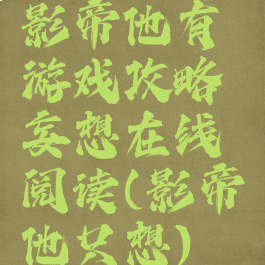 影帝他有
游戏攻略
妄想在线
阅读(影帝
他共想)